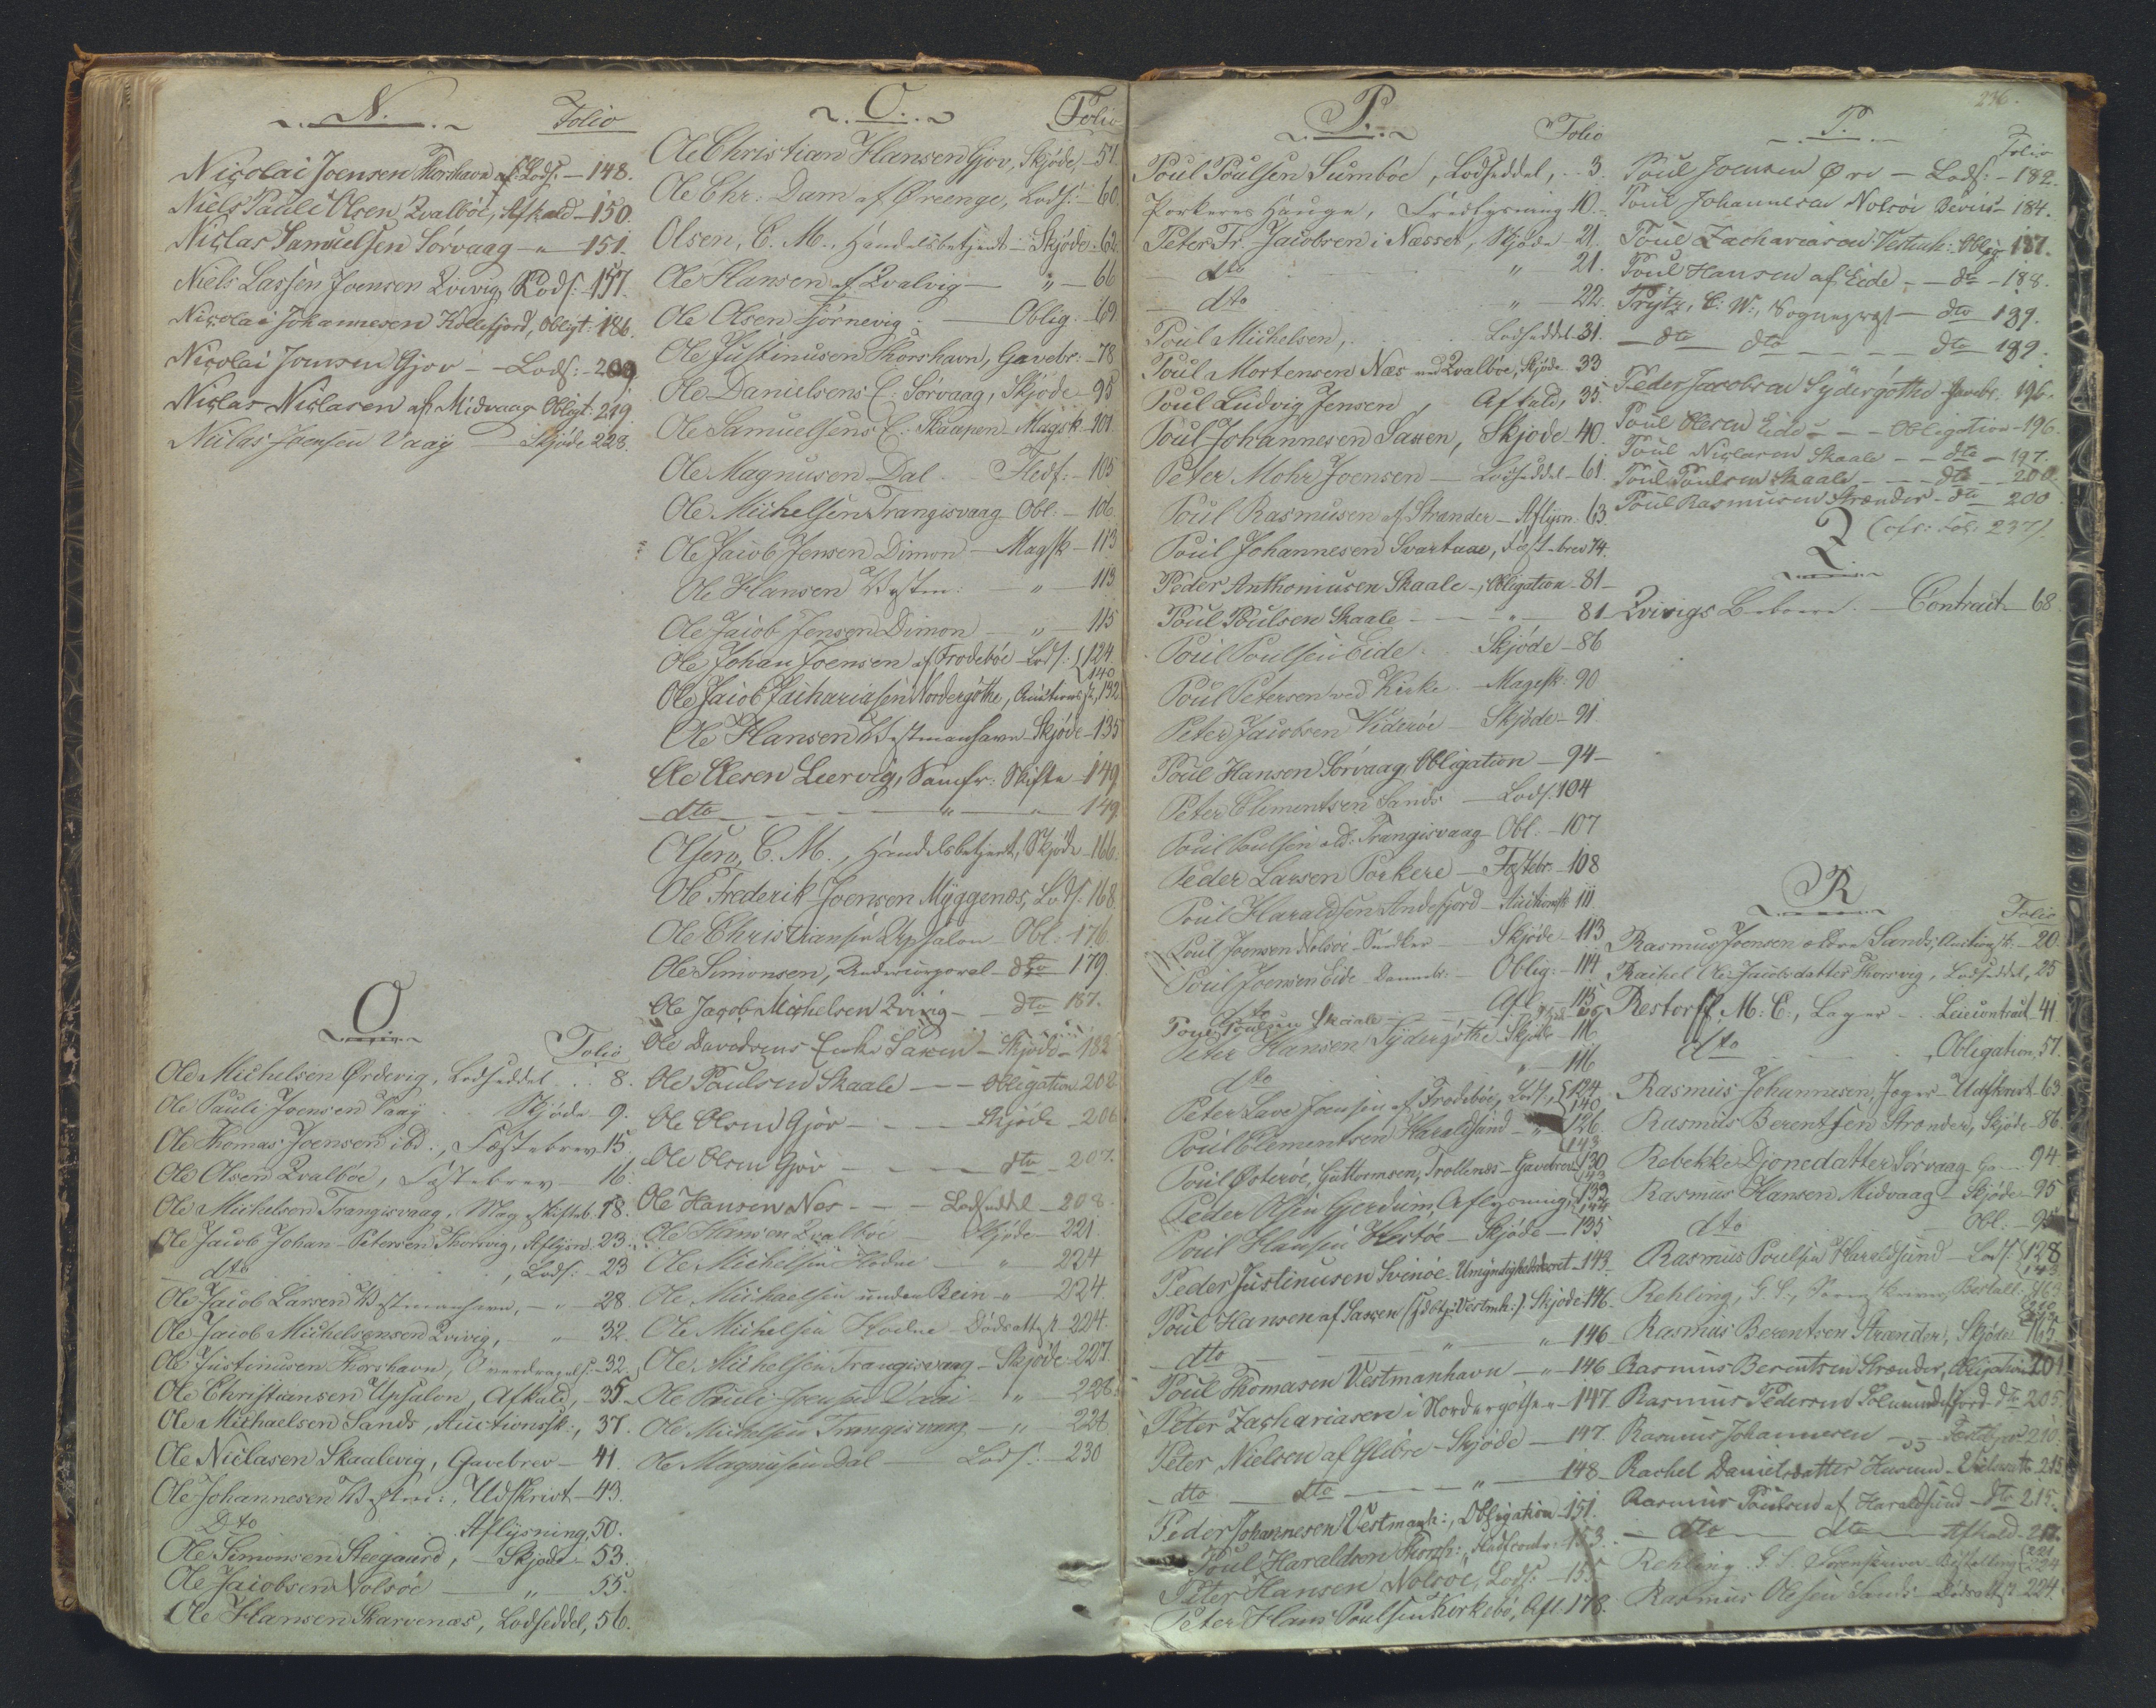 N. Folio
Nicolai Joensen Thorshavn af Lods. — 148.
Niels Pauli Olsen, Qvalböe, Afkald — 150.
Niclas Samuelsen Sörvaag — " — 151.
Niels Lassen Joensen Qvivig, Lods. — 157.
Nicolai Johannesen Kollefjord, Obligt. 186.
Nicolai Joensen Gjov — Lods: — 209
Niclas Niclasen af Midvaag Obligt: 219.
Niclas Joensen Vaag — Skjöde 223.
O
Folio
Ole Michelsen Ördevig, Lodseddel . . 8.
Ole Pauli Joensen Vaag . . Skjöde — 9.
Ole Thomas Joensen ibd., Fæstebrev 15.
Ole Olsen Qvalböe, Fæstebrev — 16.
Ole Michelsen Trangisvaag, Mageskifteb. 18.
Ole Jacob Johan Petersen Thorsvig, Aflysn. 23.
dto , Lods: — 23
Ole Jacob Larsen Westmanhavn, — " — 28.
Ole Jacob Michelsensen Qvivig, — " — 32.
Ole Justinusen Thorshavn, Overdragels. — 32.
Ole Christiansen Upsalon, Afkald, — 35.
Ole Michaelsen Sands, Auctionssk:, 37.
Ole Niclasen Skaalevig, Gavebrev — 41.
Ole Johannesen Westm:, Udskrivt — 43.
Dto Aflysning, 50.
Ole Simonsen Steegaard, — Skjøde — 53.
Ole Jacobsen Nolsöe — " — 55.
Ole Hansen Skarvenæs, Lodseddel, 56.
O. Folio
Ole Christian Hansen Gjov, Skjöde, — 57.
Ole Chr: Dam af Øreenge, Lods: — 60.
Olsen, C. M., Handelsbetjent — Skjöde — 62
Ole Hansen af Qvalvig — " — 66
Ole Olsen Tjörnevig: — Oblig: — 69.
Ole Justinusen Thorshavn, Gavebr: — 78
Ole Danielsens E: Sörvaag, Skjöde — 95
Ole Samuelsens E: Skaapen Magsk — 101.
Ole Magnusen Dal — Fledf: — 105
Ole Michelsen Trangisvaag Obl: — 106
Ole Jacob Jensen Dimon — Magsk — 113
Ole Hansen Westm: — " — 113
Ole Jacob Jensen Dimon — " — 115
Ole Johan Joensen af Frodeböe — Lods: {124.
140
Ole Jacob Zachariasen Nordregöthe, Auctionssk, 132
Ole Hansen Westmanhavn Skjøde — 135
Ole Olesen Leervig, Samfr: Skifte — 149
dto — " — " — 149.
Olsen, C. M., Handelsbetjent, Skjöde — 166.
Ole Frederik Joensen Myggenæs, Lods. 168.
Ole Christiansen Upsalon — Obl: 176.
Ole Simonsen, Undercorporal — dto 179.
Ole Jacob Michelsen Qvivig — dto 187.
Ole Davidsens Enke Saxen — Skjöde — 182
Ole Poulsen Skaale — Obligation 202.
Ole Olsen Gjov — Skjöde — 206
Ole Olsen Gjov — dto — 207.
Ole Hansen Nes — Lodseddel — 208.
Ole Hansen Qvalböe Skjöde — 221.
Ole Michelsen Hodne — " — 224
Ole Michaelsen under Bein — " — 224.
Ole Michelsen Hodne — Dödsattest — 224.
Ole Michelsen Trangisvaag — Skjöde — 227.
Ole Pauli Joensen Vaai " — 228
Ole Michelsen Trangisvaag — " — 228
Ole Magnusen Dal — Lods: — 230
P. Folio
Poul Poulsen Sumböe, Lodseddel, . . 3.
Porkeres Hauge, Fredlysning 10.
Peter Fr. Jacobsen i Næsset, Skjöde — 21.
dto " — 21.
dto " — 22.
Poul Michelsen, . . Lodseddel 31.
Poul Mortensen Næs ved Qvalböe, Skjöde 33
Poul Ludvig Jensen, Afkald, 35.
Poul Johannesen Saxen, Skjøde 40.
Peter Mohr Joensen — Lodseddel — 61.
Poul Rasmusen af Strander — Aflysn: 63
Poul Johannesen Svartaae, Fæstebrev 74.
Peder Anthoniusen Skaale — Obligation — 81 —
Poul Poulsen Skaale — " — 81
Poul Poulsen Eide . . Skjöde — 86
Poul Petersen ved Kirke — Magesk: 90
Peter Jacobsen Videröe — Skjöde — 91.
Poul Hansen Sörvaag, Obligation — 94 —
Peter Clementsen Sands — Lods. 104
Poul Poulsen æld: Trangisvaag — Obl. — 107
Peder Larsen Porkere — Fæstebr. 108
Poul Haraldsen Andefjord — Auctionssk 111
Poul Joensen Nolsöe — Snedker — Skjöde — 113
Poul Joensen Eide — Dannebr: — Oblig: — 114
dto Afl. — 115
Poul Poulsen Skaale
Peter Hansen Sydergöthe — Skjøde — 116.
dto " — 116
Peter Lave Joensen af Frodeböe, Lods, {124
140
Poul Clementsen Haraldsund — " — 126.
143
Poul Österöe, Guttormsen, Trollenæs — Gavebrev {130
143
Peder Olsen Gjerdum, Aflysning, {132
144
Poul Hansen Hestöe — Skjøde — 135
Peder Justinusen Svinöe — Umyndighedsdecret — 143.
Poul Hansen af Saxen (Hdbtj: Vestmh:) Skjöde 146.
dto — " — " — 146
Poul Thomasen Vestmanhavn — " — 146
Peter Zachariasen i Nordregöthe — " — 147.
Peter Nielsen af Glibre — Skjøde — 147.
dto dto — " — 148
Peder Johannesen Vestmanh:, Obligation — 151.
Poul Haraldsen Thorsh:, 153.
Peter Hansen Nolsöe, Lods: — 15
Peter Hans Poulsen Kirkebö, Afl. 178.
236.
P. Folio
Poul Joensen Øre — Lods: — 182.
Poul Johannesen Nolsöe Beviis — 184.
Poul Zachariasen Vestmh: Oblig 187.
Poul Hansen af Eide — dto — 188.
Prytz, C. W., Sognepræst — dto 189.
— dto dto — dto 189.
Peder Jacobsen Sydergöthe Gavebr. 196.
Poul Olesen Eide — Obligation — 196.
Poul Niclasen Skaale — dto — 197.
Poul Poulsen Skaale — dto — 200.
Poul Rasmusen Strænder — dto 200
(cfr: Fol: 237).
Q.
Qvivigs Beboere. — Contract — 68.
R
Folio
Rasmus Joensen ældre Sands, Auctionssk. — 20.
Rachel Ole Jacobsdatter Thorsvig, Lodseddel, 25
Restorff, M. C., Lager . . Leiecontract 41
dto , Obligation, 57.
Rasmus Johannesen, Jæger — Udskrivt — 63
Rasmus Berentsen Strænder, Skjöde — 86.
Rebekke Djonedatter Sörvaag — Ga — 94.
Rasmus Hansen Midvaag — Skjöde — 95
dto — Obl: — 95
Rasmus Poulsen Haraldsund — Lods: {128
143
Rehling, G. L., Sorenskriver, Bestall: 163
210
Rasmus Berentsen Strænder, Skjöde 165
Rasmus Berentsen Strænder, Obligation 201
Rasmus Pedersen Solmundefjord — dto 205.
Rasmus Johannesen — 210.
Rachel Danielsdatter Husum — Vielsesatt. 215
Rasmus Poulsen af Haraldsund — dto 215.
— dto — dto — Afkald — 217.
Rehling G. L. Sorenskriver Bestalling {221
224
Rasmus Olesen Sands — Dödsattst 224.